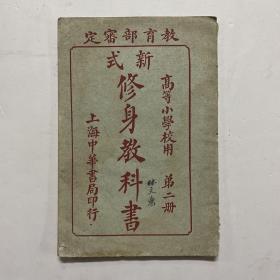 教育部審定
新式
高等小學校用 第二册
修身教科書
上海中華書局印行